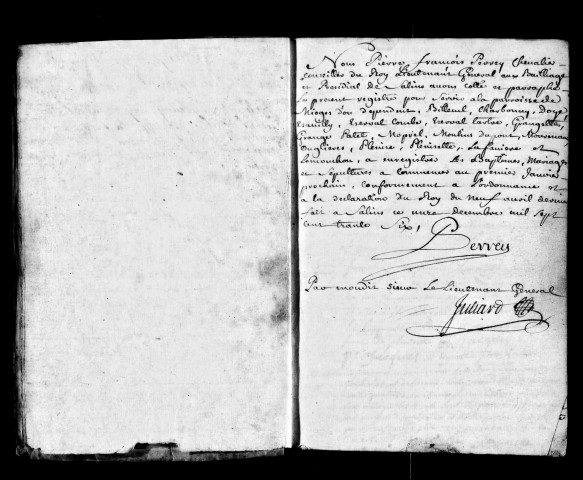 Nous Pierre françois Perrey Chevalier
Conseiller du Roy Lieutenant General au Bailliage
et Presidial de Salins avons cotté et paraphé
le present registre pour servir a la parroisse de
Mieges d'ou dependent, Billecul, Charbonny, Doye
Esserval Combe, Esserval tartre,
Grange Molprel, Moulins du pont,
Onglieres, Plenise, Plenisette, La favière et
Lemouhon, a enregistrer les Baptemes, Mariages
et Sepultures a commencer au premier Janvier
prochain, conformement a l'ordonnance et
a la declaration du Roy du neuf avril dernier
fait a Salins ce onze decembre mil sept
cent trante Six,
Perrey
Par mondit sieur Le Lieutenant General
Juliard